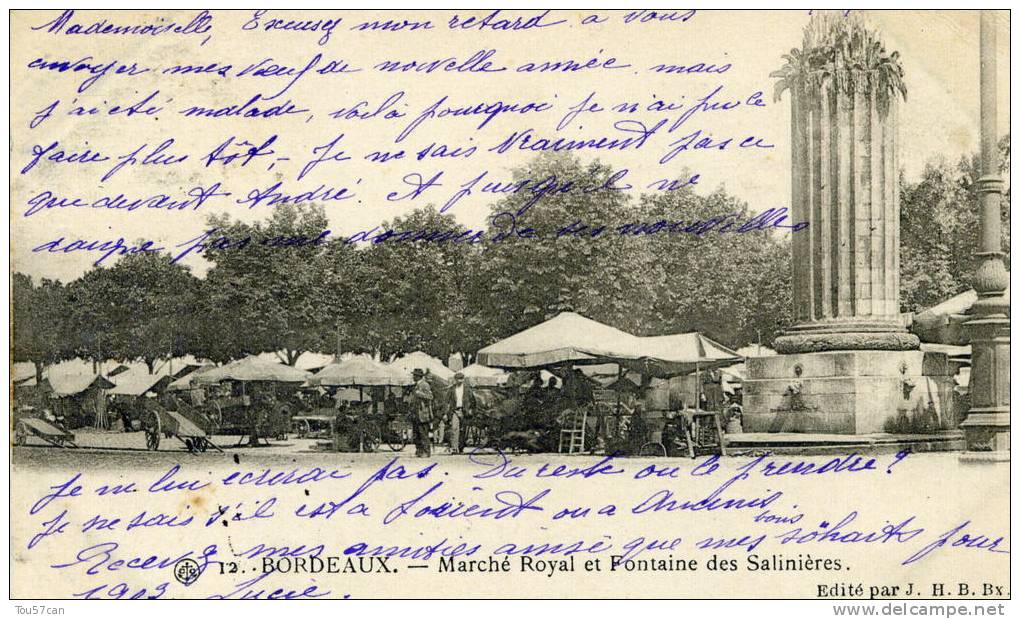 Mademoiselle, Excusez mon retard a vous
envoyer mes vœux de nouvelle année mais
j'ai été malade, voilà pourquoi je n'ai pu le
faire plus tôt, - Je ne sais vraiment pas ce
que devient André. Et puisqu'il ne
daigne pas me donner de ses nouvelles
je ne lui écrirai pas. Du reste ou le prendre ?
Je ne sais s'il est a Lorient ou a Ancenis
bons
Recevez mes amitiés ainsi que mes söhaits pour
1903. Lucie.
12. BORDEAUX. — Marché Royal et Fontaine des Salinières.
Edité par J. H. B. Bx.
Tou57can
www.delcampe.net